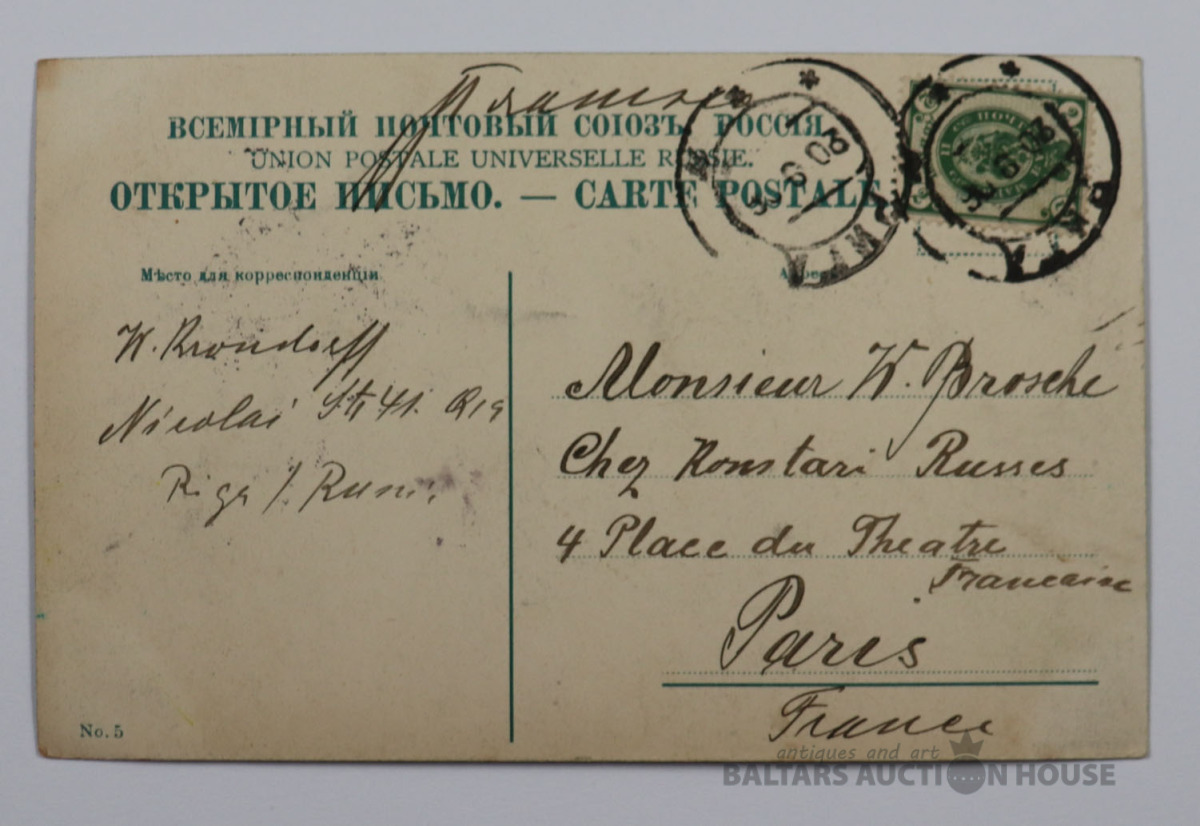 ВСЕМІРНЫЙ ПОЧТОВЫЙ СОЮЗЪ. РОССІЯ.
UNION POSTALE UNIVERSELLE RUSSIE.
ОТКРЫТОЕ ПИСЬМО. — CARTE POSTALE.
Мѣсто для корреспонденціи
Адресъ
W. Krondorff
Nicolai Str 41.
Riga
Monsieur W. Brosche
Chez Konstari Russes
4 Place du Theatre
Francaise
Paris
France
No. 5
antiques and art
BALTARS AUCTION HOUSE